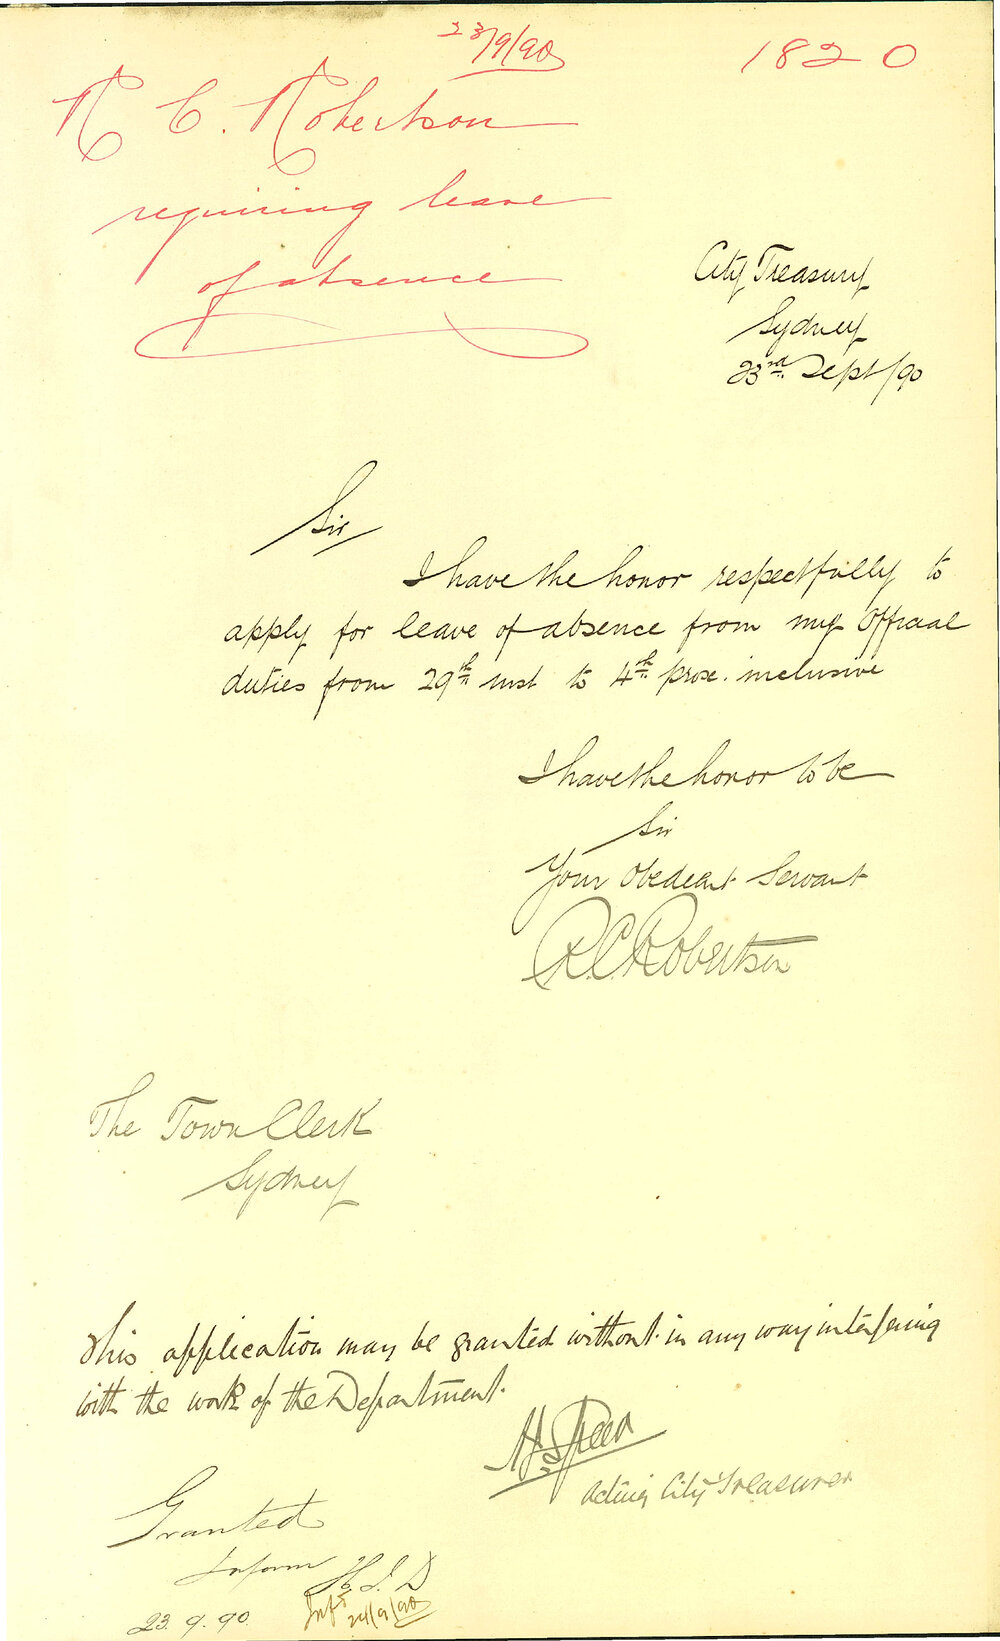 23/9/90
1820
R C. Robertson
requiring leave
of absence
City Treasury
Sydney
23rd Sept/90
Sir
I have the honor respectfully to
apply for leave of absence from my Official
duties from 29th inst to 4th prox. inclusive
I have the honor to be
Sir
Your Obedient Servant
R.C. Robertson
The Town Clerk
Sydney
This application may be granted without in any way interfering
with the work of the Department.
Acting City Treasurer
Granted
Inform H. J. D
23.9.90
Infd 24/9/90